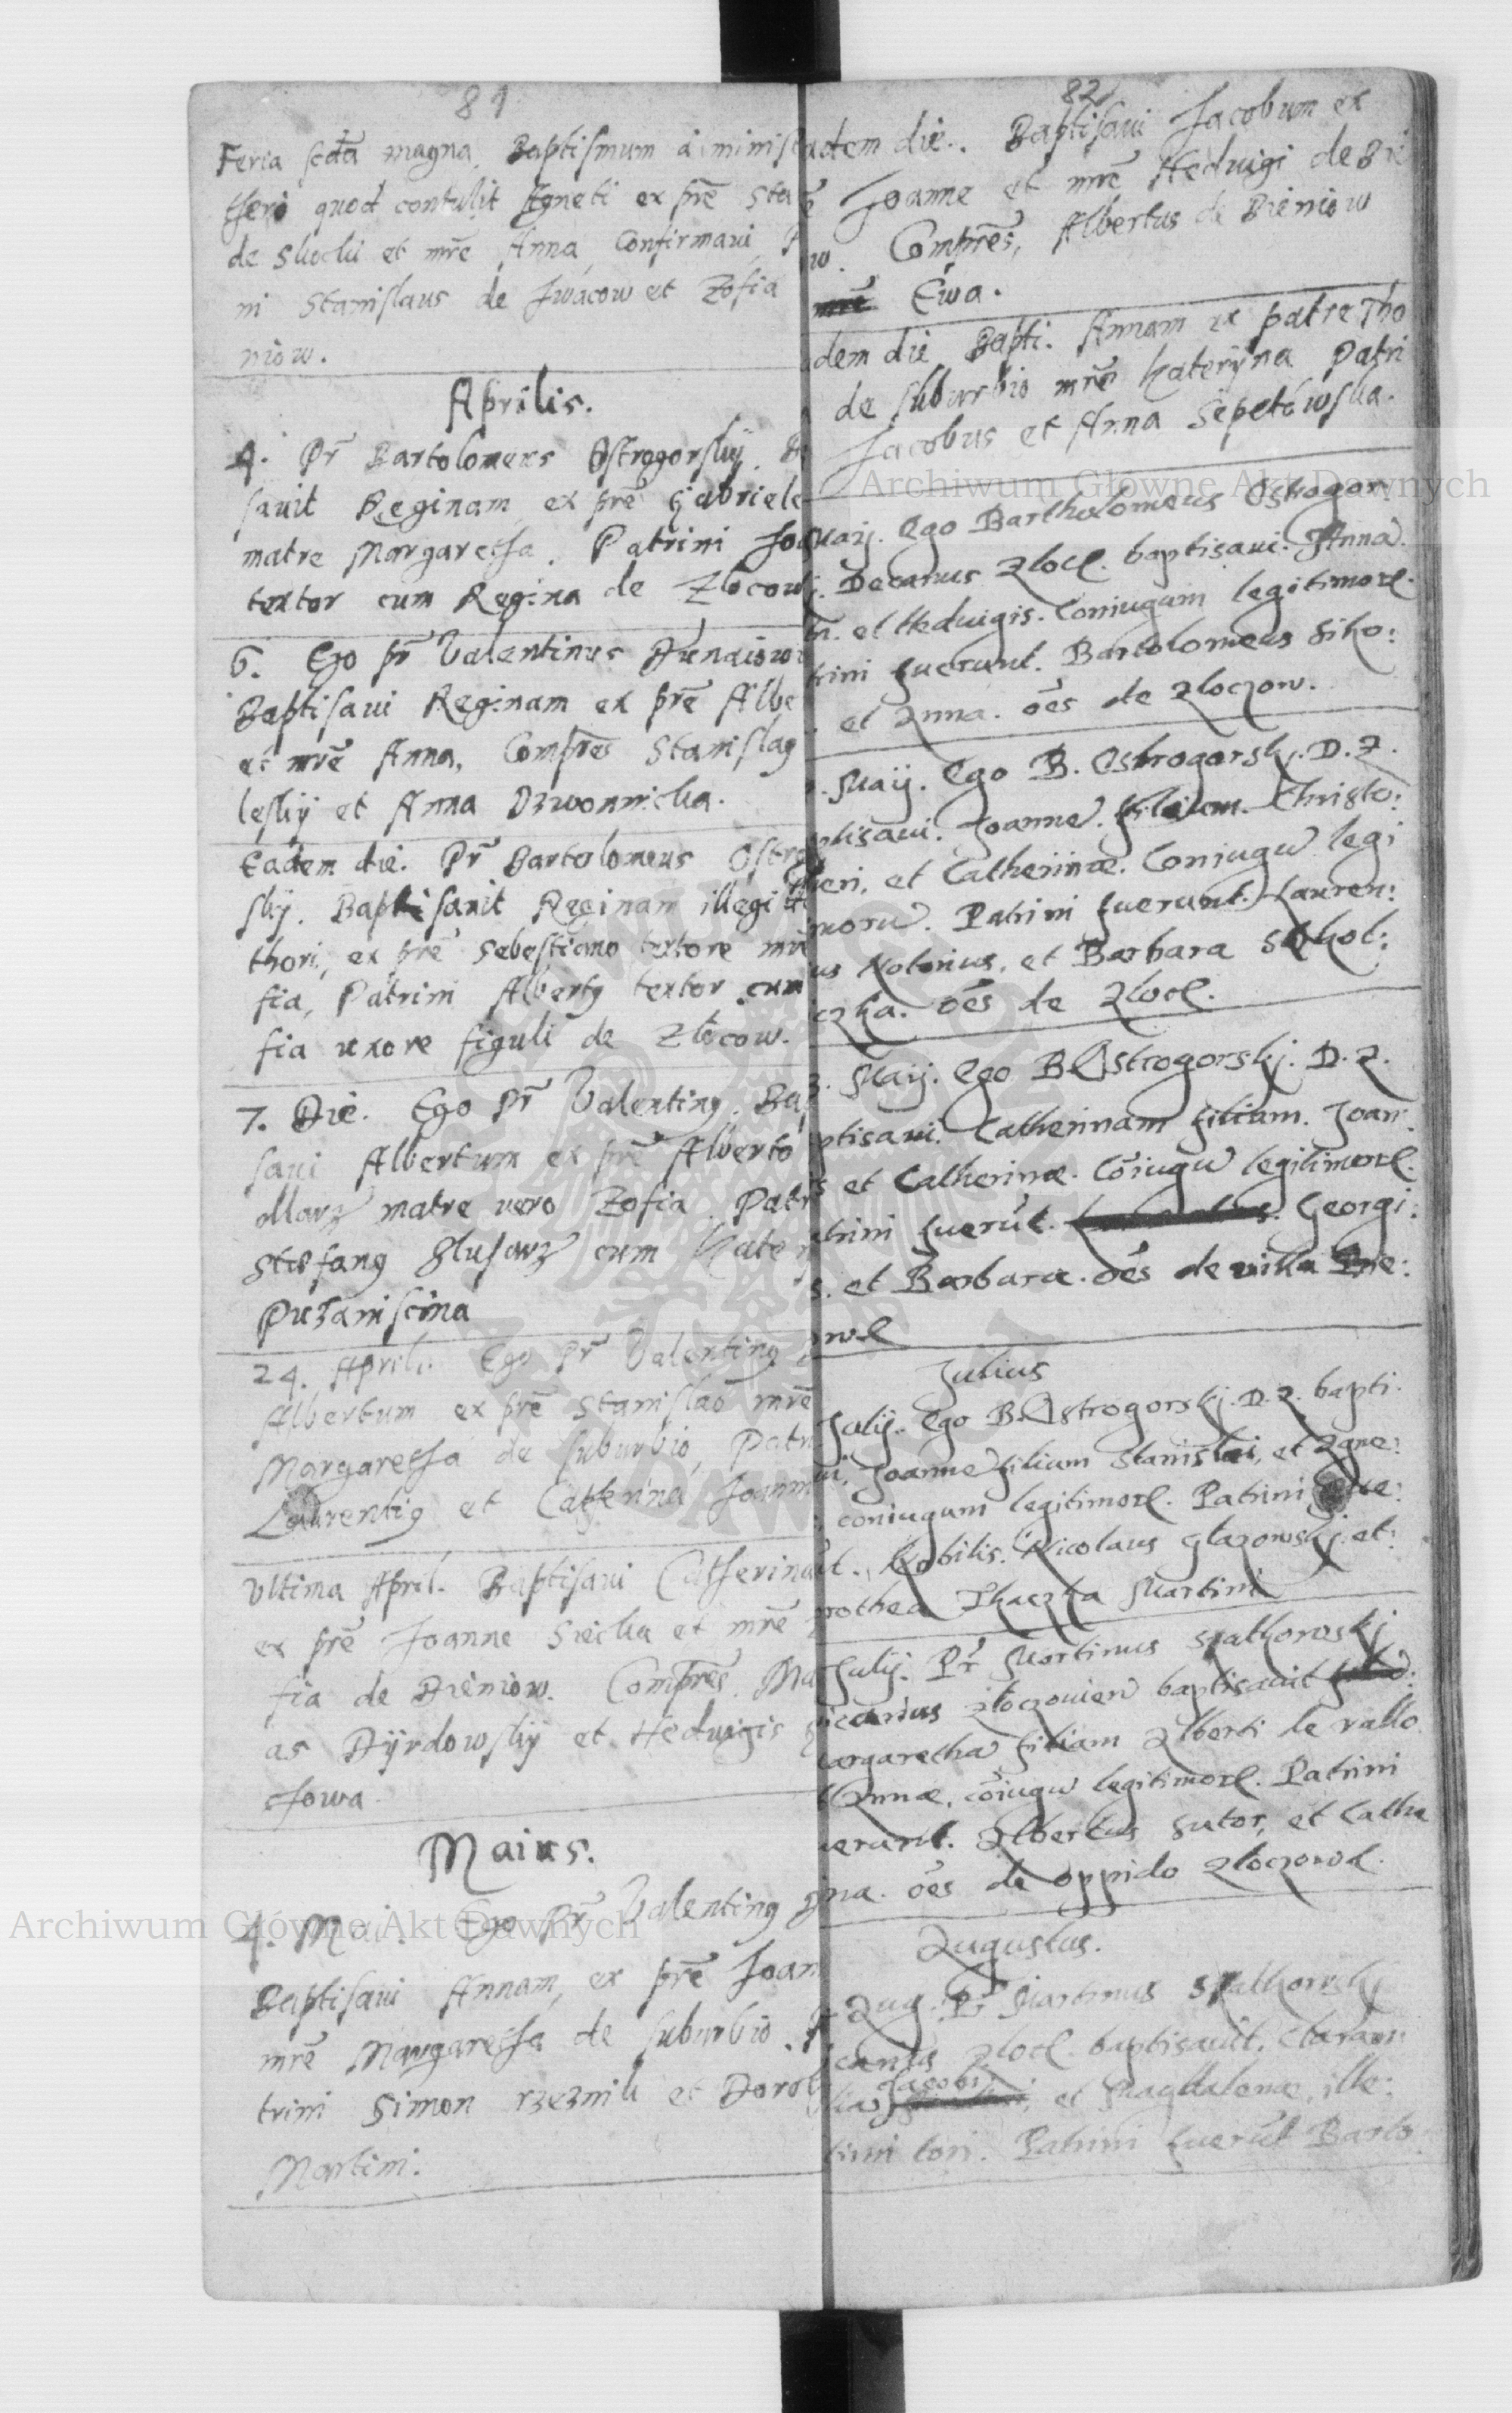 81
Feria scda magna. Baptismum a minist
theri quod contulit Agneti ex pre Sta
de et mre Anna, Confirmavi,
ni Stanislaus de Iwacow et Zofia
niow.
Aprilis.
4. Pr Bartolomeus Ostrogorsky.
savit Reginam, ex pre Gabriele
matre Margaretha. Patrini Joa
textor cum Regina de Zlocow
6. Ego pr Valentinus Dunaiow
Baptisavi Reginam ex pre Albe
et mre Anna, Compres Stanislaus
lesky et Anna Dzwonnicka.
Eadem die. Pr Bartolomeus Ostro
sky. Baptisavit Reginam illegiti
thori, ex pre Sebestiano textore mre
fia, Patrini Albertus textor cum
fia uxore figuli de Zlocow.
7. Die. Ego Pr Valentinus. Bap
savi Albertum ex pre Alberto
ollarz matre vero Zofia. Patri
Stefanus Slusarz cum Kate
Puzaniscina
24. April. Ego Pr Valentinus
Albertum ex pre Stanislao mre
Margaretha de suburbio, Patri
Laurentius et Catherina Joann
Ultima April. Baptisavi Catherina
ex pre Joanne Siecka et mre
fia de Bieniow. Compres. Ma
as Dyrdowsky et Hedwigis
chowa.
Maius.
4. Mai. Ego Pr Valentinus
Baptisavi Annam, ex pre Joan
mre Margaretha de suburbio.
trini Simon rzeznik et Dorot
Martini.
82
adem die. Baptisavi Jacobum ex
Joanne et mre Heduigi de Bie
w. Compres, Albertus de Bieniow
Ewa.
dem die Bapti. Annam ex patre Tho
de suburbio mre Kateryna Patri
Jacobus et Anna Sepetowska.
Maij. Ego Bartholomeus Ostrogor:
Decanus Zlocz. baptisavi. Anna.
et Heduigis. Coniugum legitimor.
trini fuerunt. Bartolomeus Siko:
et Anna. oes de Zloczow.
Maij. Ego B. Ostrogorskj. D. Z.
ptisavi. Joanne. filium. Christo:
heri, et Catherinae. Coniugu legi
moru. Patrini fuerunt. Lauren:
us Notarius, et Barbara Skol:
iczka. oes de Zlocz.
Maij. Ego B Ostrogorskj. D. Z.
ptisavi. Catherinam filiam. Joan:
s et Catherinae. Coiugu legitimor.
atrini fuerut. Georgi:
s. et Barbara. oes de villa Bie:
Julius
Julij. Ego B. Ostrogorskj. D. Z. bapti.
vi. Joanne filium Stanislai, et Agne:
coniugum legitimor. Patrini fue:
t. Nobilis. Nicolaus Glazowskj. et:
rothea Tkaczka Martini
Julij. Pr Martinus
vicarius zloczovien baptisavit
argaretha filiam Alberti de vallo.
Annae, coiugu legitimor. Patrini
uerunt. Albertus sutor, et Cathe
ina. oes de oppido Zloczow.
Augustus.
Aug. Pr Martinus
carius Zlocz. baptisavit. Claram
lia Jacobi, et Magdalenae, ille:
timi tori. Patrini fuerut Barto
Archiwum Główne Akt Dawnych
Archiwum Główne Akt Dawnych